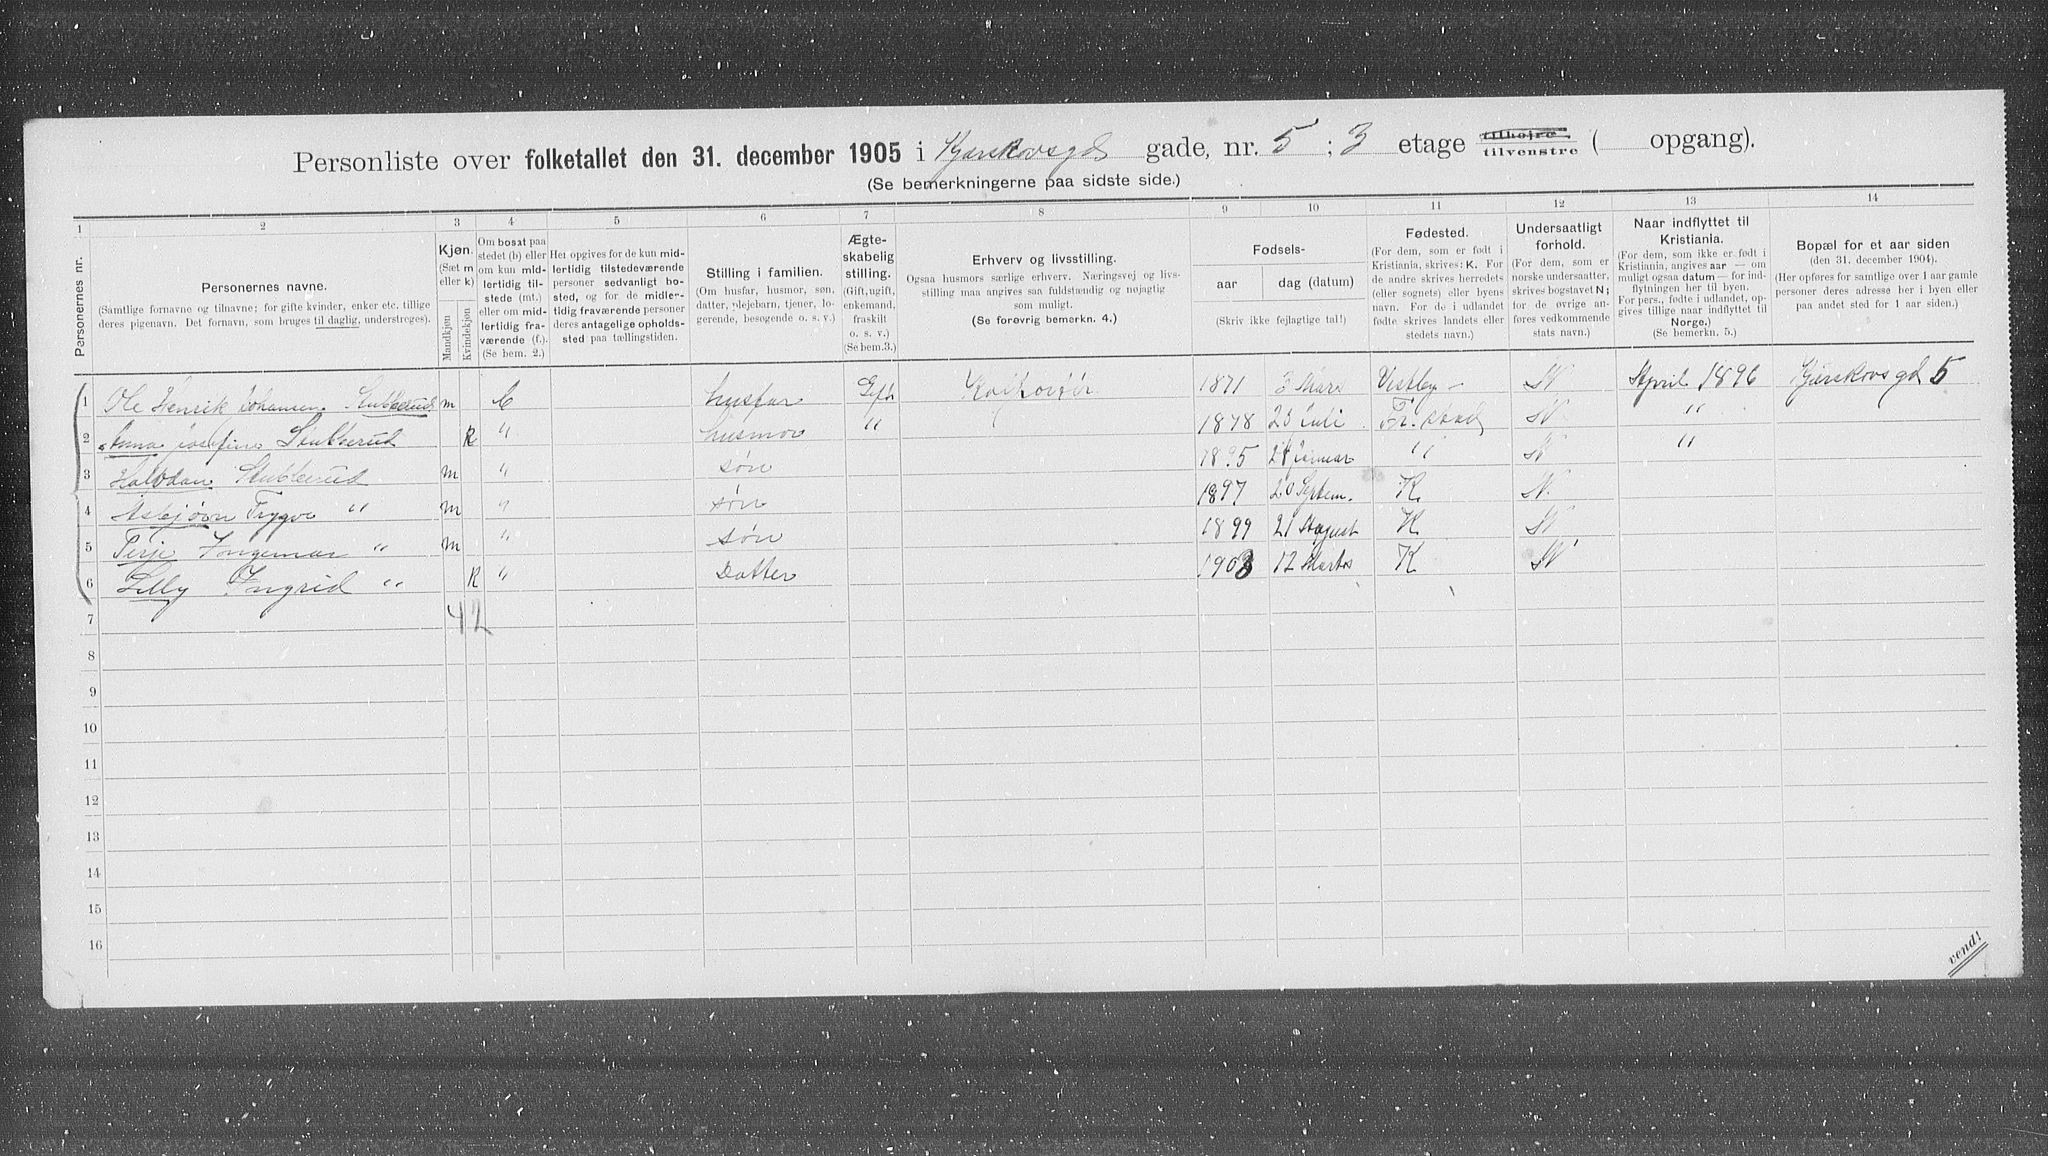 Personliste over folketallet den 31. december 1905 i Kjærskovsgd gade, nr. 5 ; 3 etage tilhøjre tilvenstre ( opgang).
(Se bemerkningerne paa sidste side.)
1 2 3 4 5 6 7 8 9 10 11 12 13 14
Personernes nr.
Personernes navne.
(Samtlige fornavne og tilnavne; for gifte kvinder, enker etc. tillige deres pigenavn. Det fornavn, som bruges til daglig, understreges).
Kjøn.
(Sæt m eller k)
Mandkjøn
Kvindekjøn
Om bosat paa stedet (b) eller om kun midlertidig tilstede (mt.) eller om midlertidig fraværende (f.).
(Se bem. 2.)
Her opgives for de kun midlertidig tilstedeværende personer sedvanligt bosted, og for de midlertidig fraværende personer deres antagelige opholdssted paa tællingstiden.
Stilling i familien.
(Om husfar, husmor, søn, datter, plejebarn, tjener, logerende, besøgende o. s. v.)
Ægteskabelig stilling.
(Gift, ugift, enkemand, fraskilt o. s. v.)
(Se bem.3.)
Erhverv og livsstilling.
Ogsaa husmors særlige erhverv. Næringsvej og livsstilling maa angives saa fuldstændig og nøjagtig som muligt.
(Se forøvrig bemerkn. 4.)
Fødsels-
aar
dag (datum)
(Skriv ikke fejlagtige tal!)
Fødested.
(For dem, som er født i Kristiania, skrives: K. For de andre skrives herredets (eller sognets) eller byens navn. For de i udlandet fødte skrives landets eller stedets navn.)
Undersaatligt forhold.
(For dem, som er norske undersaatter, skrives bogstavet N; for de øvrige anføres vedkommende stats navn.)
Naar indflyttet til Kristiania.
(For dem, som ikke er født i Kristiania, angives aar — om muligt ogsaa datum — for indflytningen her til byen. For pers., fødte i udlandet, opgives tillige naar indflyttet til Norge.)
(Se bemerkn. 5.)
Bopæl for et aar siden
(den 31. december 1904).
(Her opføres for samtlige over 1 aar gamle personer deres adresse her i byen eller paa andet sted for 1 aar siden.)
1 Ole Henrik Johansen Stubberud m b husfar Gift 1871 3 Mars Vestby N April 1896 Kjærskovsgd 5
2 Anna Josefine Stubberud k " husmor " 1878 23 Juli Fr.stad N "
3 Halvdan Stubberud m " søn 1895 21 Januar " N "
4 Asbjørn Trygve " m " søn 1897 20 Septem. K N.
5 Terje Ingemar " m " søn 1899 21 August K N
6 Lilly Ingrid " k " Datter 1903 12 Marts K N
7 4 2
8
9
10
11
12
13
14
15
16
vend!